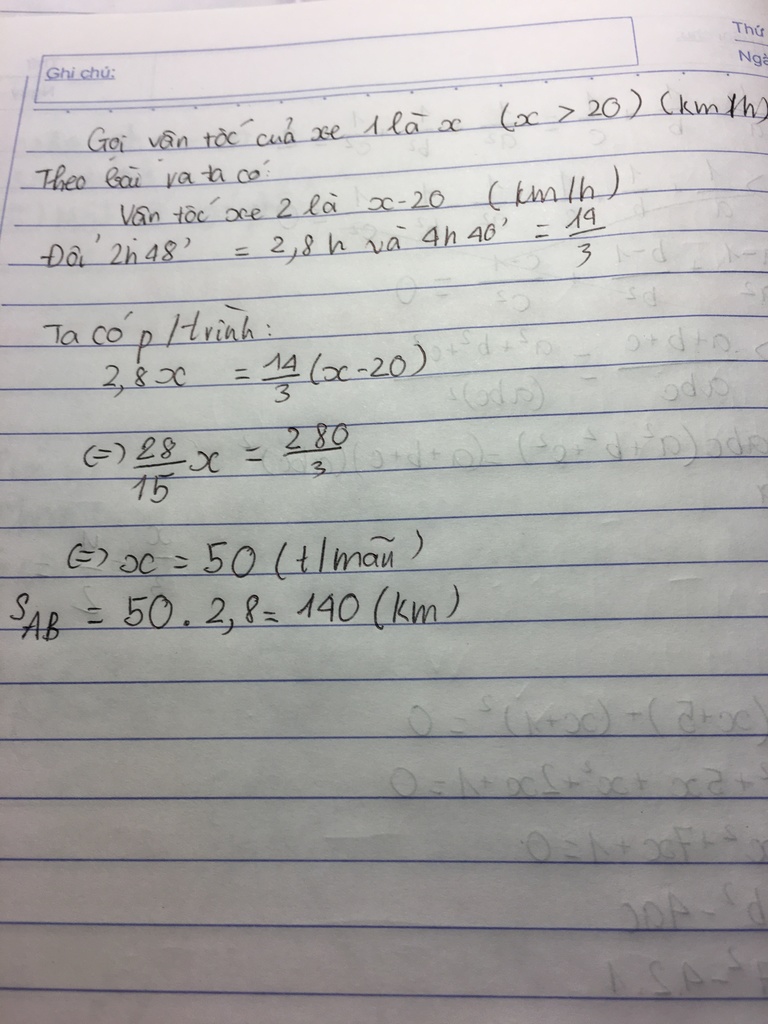 Thứ
Ngà
Ghi chú:
Gọi vận tốc của xe 1 là x (x > 20) (km/h)
Theo bài ra ta có:
Vận tốc xe 2 là x-20 (km/h)
Đổi 2h48' = 2,8h và 4h40' = 14/3
Ta có p/trình:
2,8x = 14/3 (x-20)
(=) 28/15 x = 280/3
(=) x = 50 (t/mãn)
S_AB = 50 . 2,8 = 140 (km)